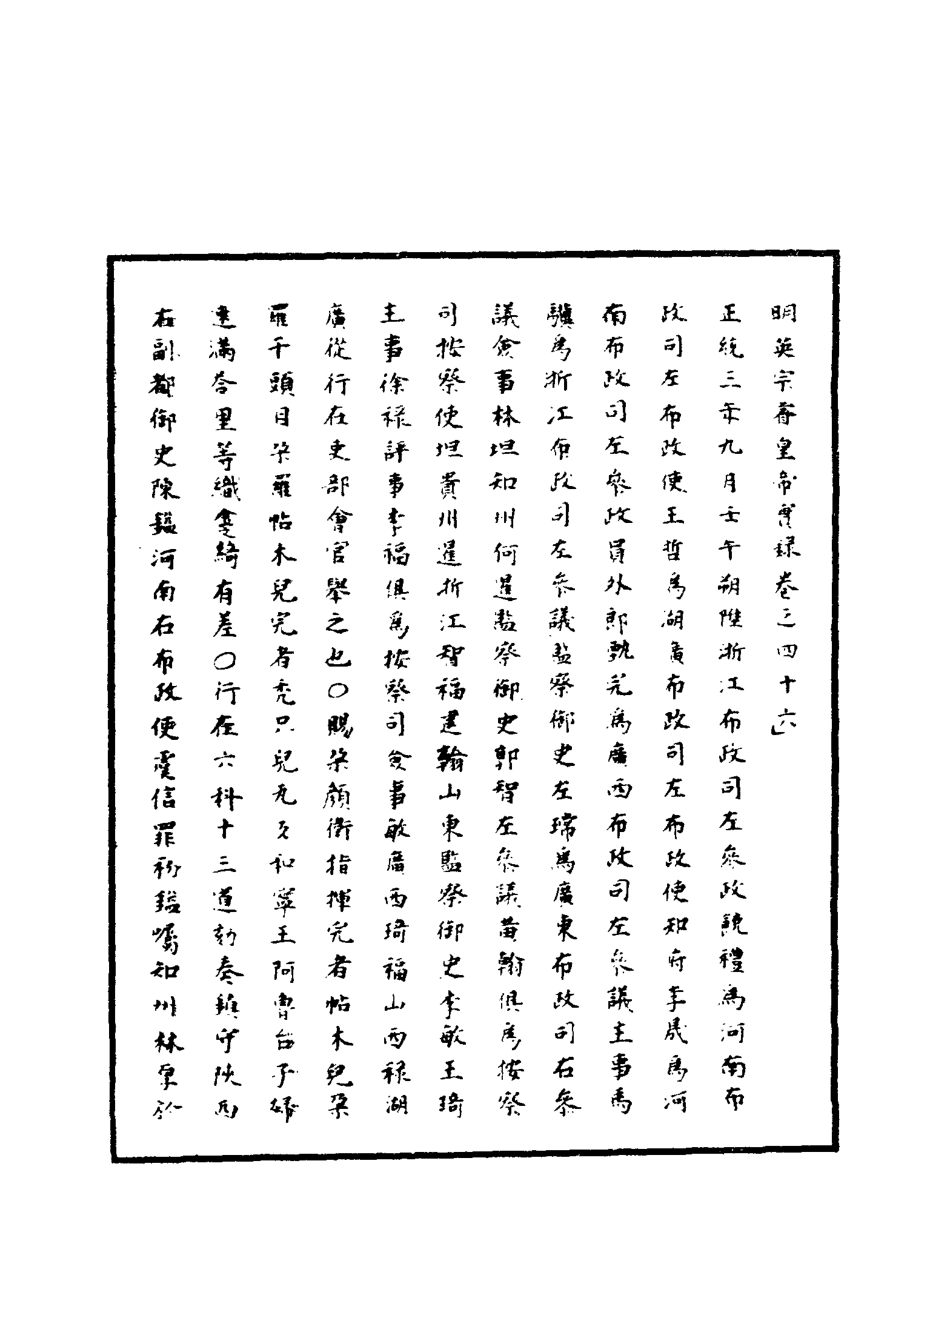 明英宗睿皇帝實錄卷之四十六
正統三年九月壬午朔陞浙江布政司左參政饒禮為河南布
政司左布政使王哲為湖廣布政司左布政使知府李晟為河
南布政司左參政員外郎甄完為廣西布政司左參議主事馬
驥為浙江布政司左參議監察御史左瑺為廣東布政司右參
議僉事林坦知州何暹監察御史郭智左參議黃翰俱為按察
司按察使坦貴州暹折江智福建翰山東監察御史李敏王琦
主事徐祿評事李福俱為按察司僉事敏廣西琦福山西祿湖
廣從行在吏部會官舉之也○賜朶顏衛指揮完者帖木兒朶
羅干頭目朶羅帖木兒完者禿只兒瓦及和寧王阿魯台子婦
速滿荅里等織金綺有差○行在六科十三道劾奏鎮守陝西
右副都御史陳鎰河南右布政使虞信罪初鎰囑知州林厚於